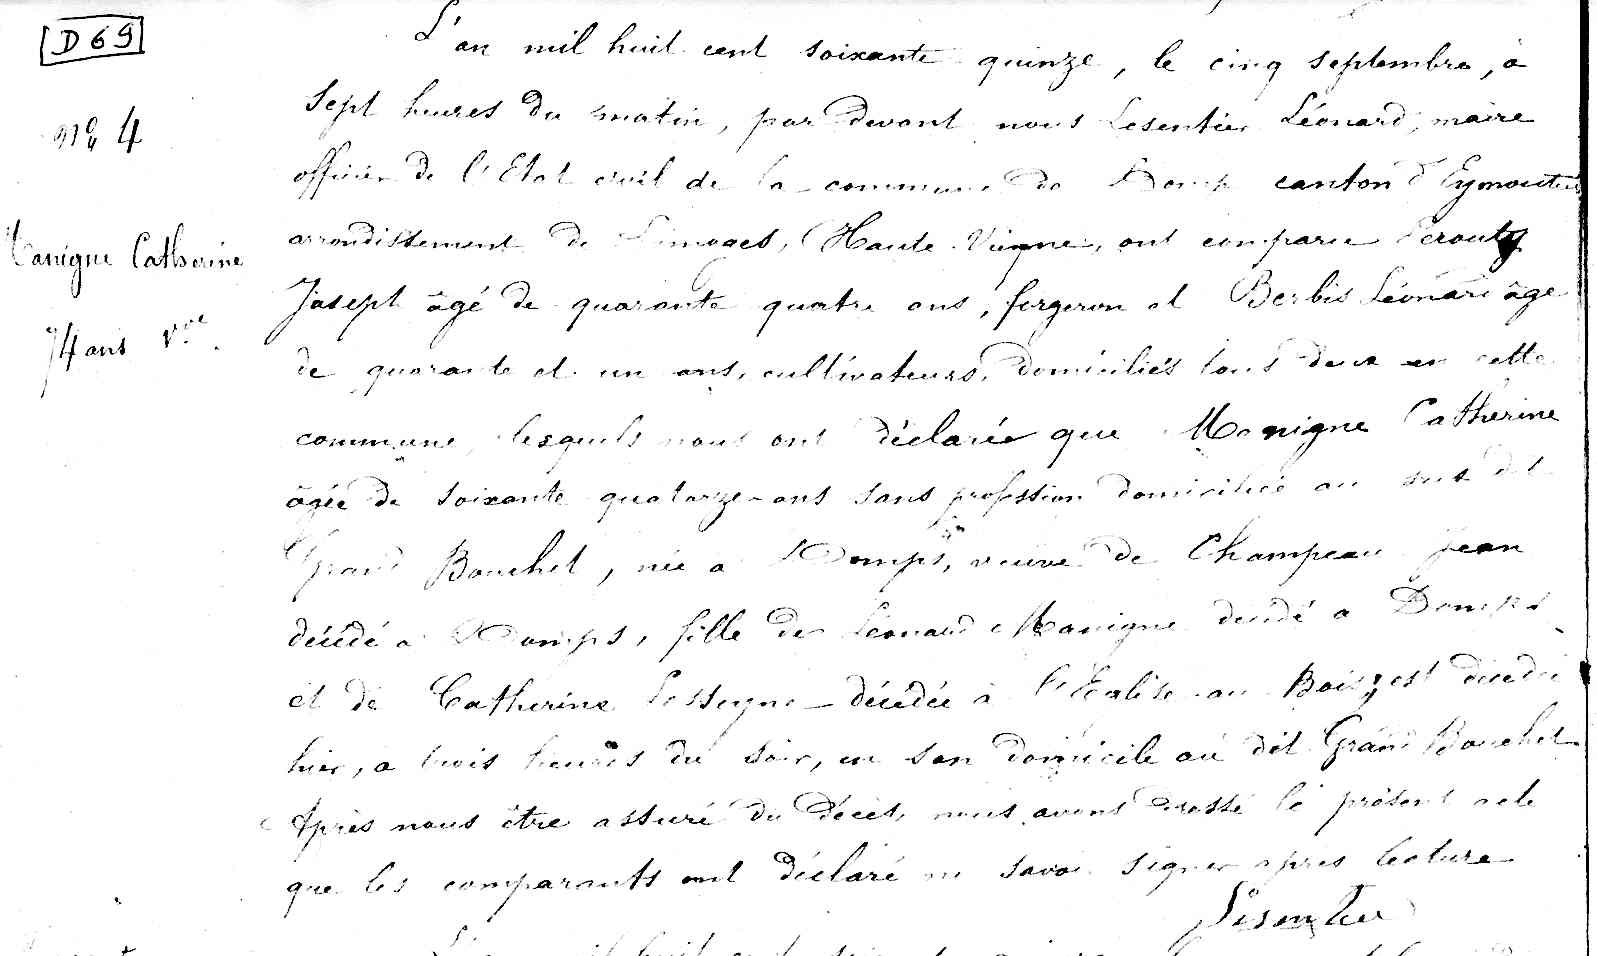 D 69
L'an mil huit cent soixante quinze, le cinq septembre, à
sept heures du matin, par devant nous Lesentier Léonard, maire
N° 4
officier de l'Etat civil de la commune de Domps canton d'Eymoutiers
arrondissement de Limoges, Haute Vienne, ont comparu Perouty
Manigne Catherine
Joseph âgé de quarante quatre ans, forgeron et Berbis Léonard âgé
74 ans Vve
de quarante et un ans, cultivateurs, domiciliés tous deux en cette
commune, lesquels nous ont déclarée que Manigne Catherine
âgée de soixante quatorze ans sans profession domiciliée au sus dit
Grand Bouchet, née a Domps, veuve de Champeau Jean
décédé a Domps, fille de Léonard Manigne décédé a Domps
et de Catherine décédée à l'Eglise au Bois, est décédée
hier, a trois heures du soir, en son domicile au dit Grand Bouchet
Après nous être assuré du décès, nous avons dressé le présent acte
que les comparants ont déclaré ne savoir signer après lecture
Lesentier